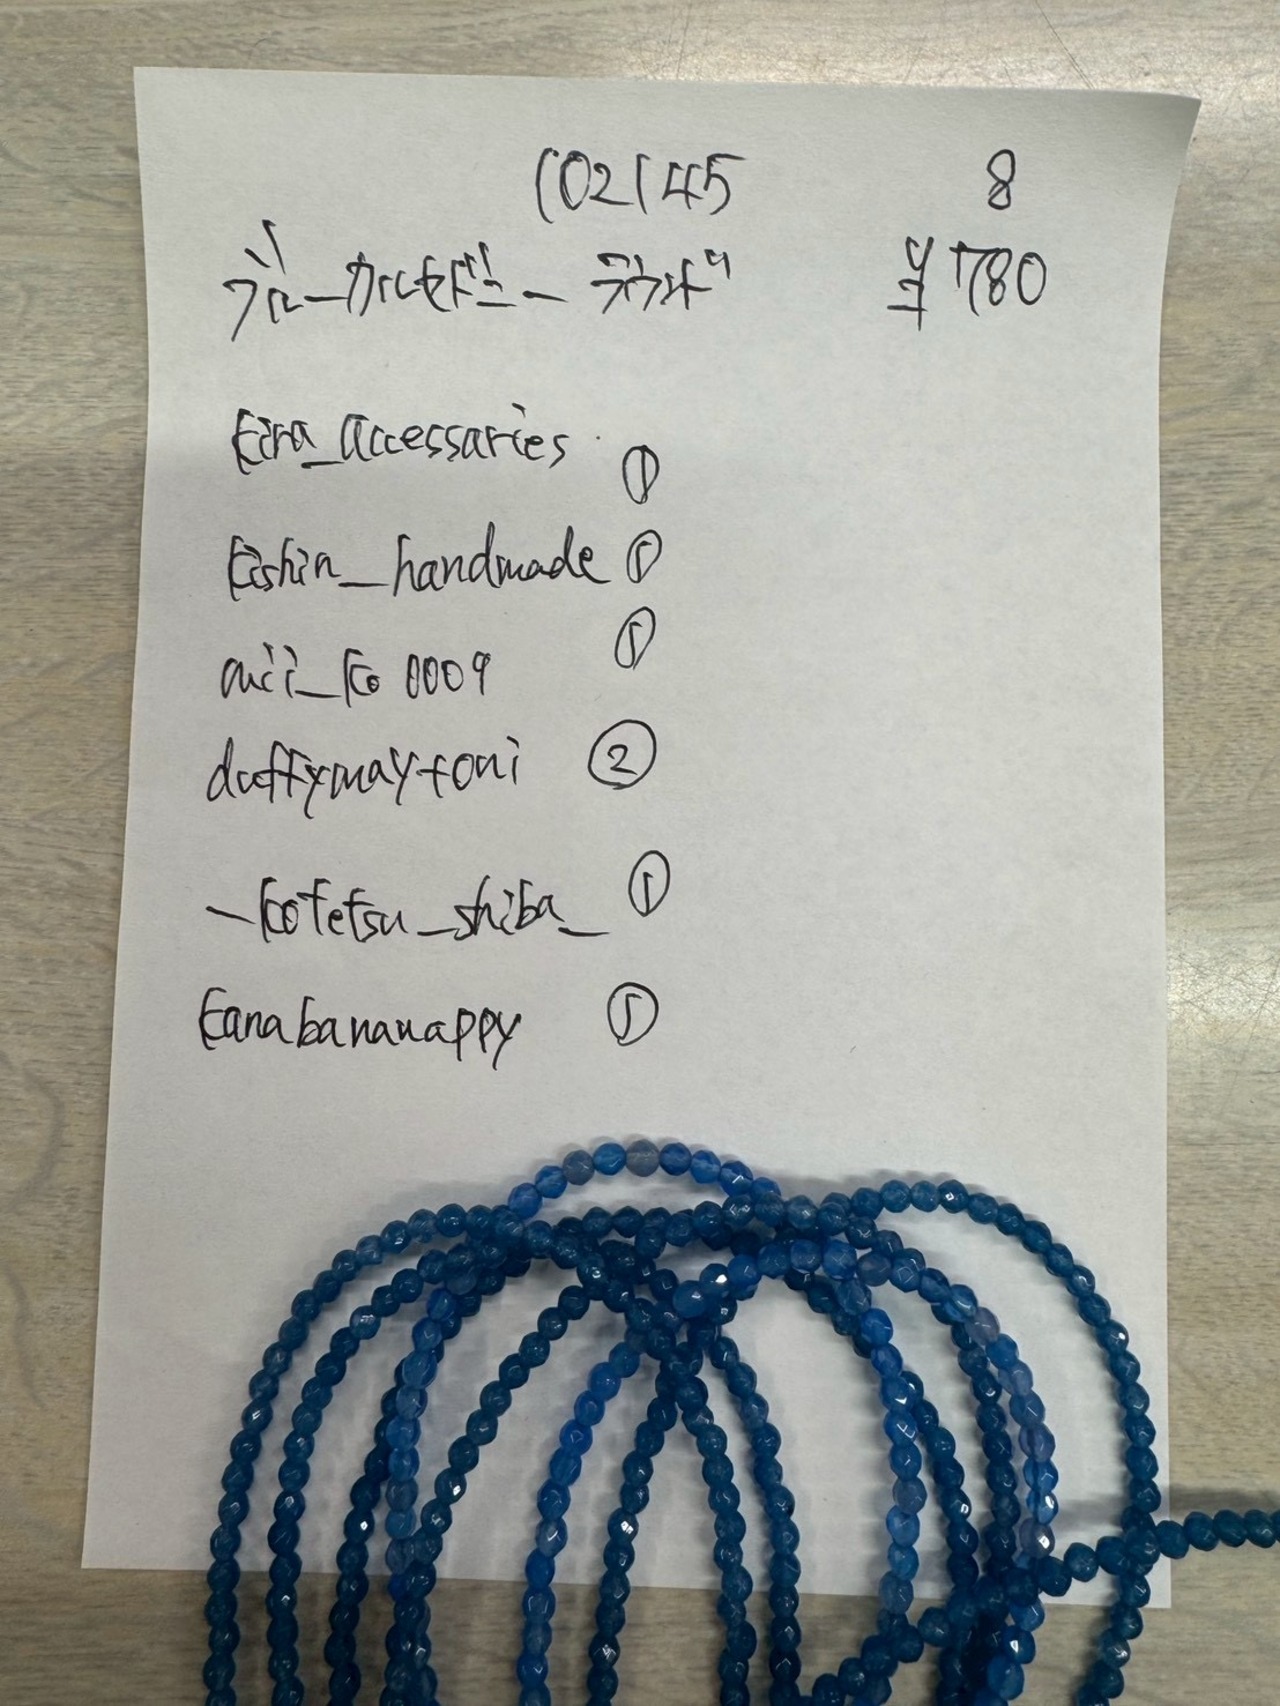 102145 8
ブルーカルセドニー ラウンド ¥780
kira_accessaries ①
kishin_handmade ①
mii_ko0009 ①
duffymaytoni ②
_kotetsu_shiba_ ①
kanabananappy ①